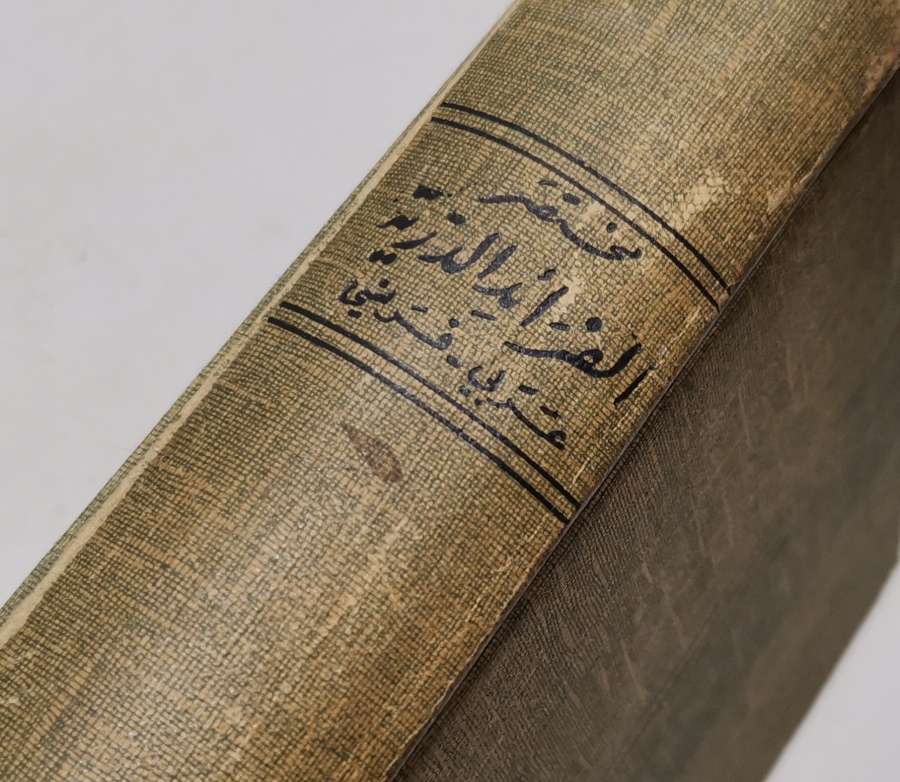 مختصر
الفرائد الدرّيّة
عربي - فرنسي